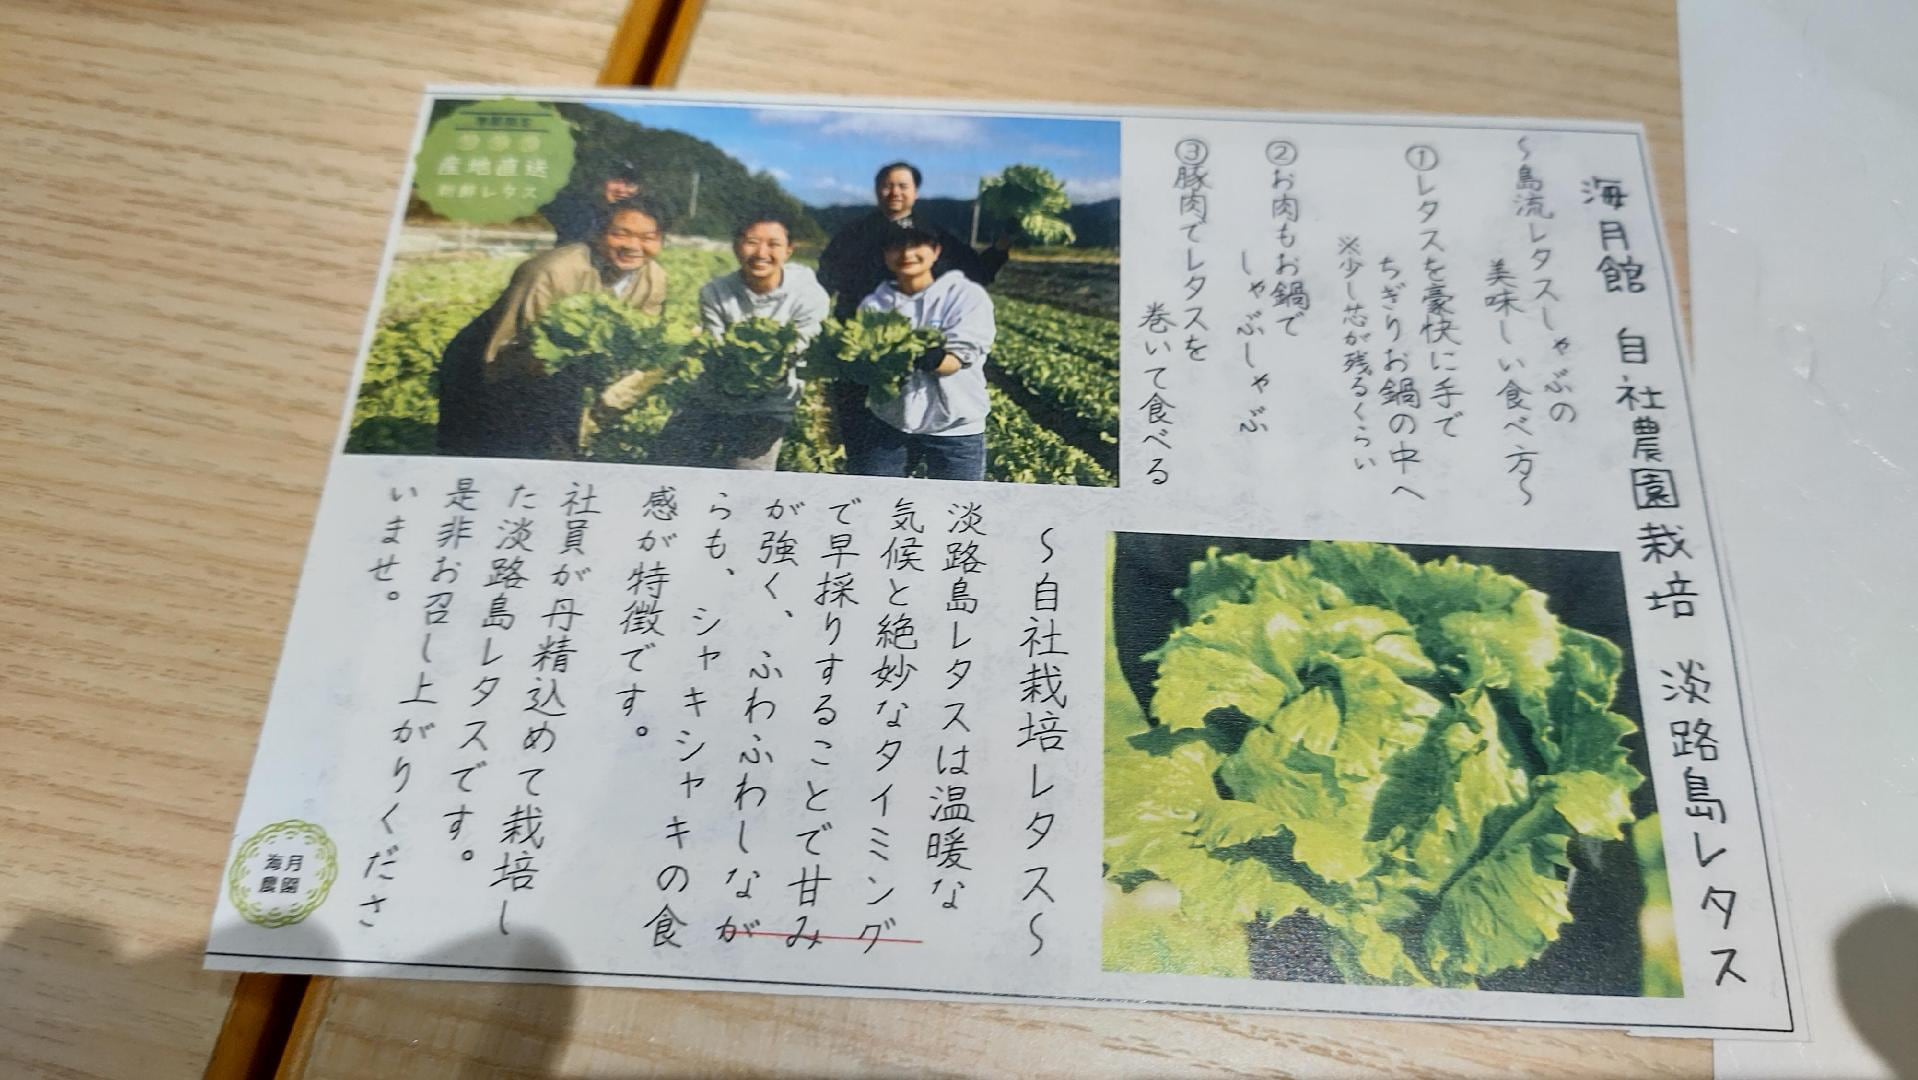 海月館 自社農園栽培 淡路島レタス
～島流レタスしゃぶの
美味しい食べ方～
①レタスを豪快に手で
ちぎりお鍋の中へ
※少し芯が残るくらい
②お肉もお鍋で
しゃぶしゃぶ
③豚肉でレタスを
巻いて食べる
産地直送
新鮮レタス
～自社栽培レタス～
淡路島レタスは温暖な
気候と絶妙なタイミング
で早採りすることで甘み
が強く、ふわふわしなが
らも、シャキシャキの食
感が特徴です。
社員が丹精込めて栽培し
た淡路島レタスです。
是非お召し上がりくださ
いませ。
海月
農園